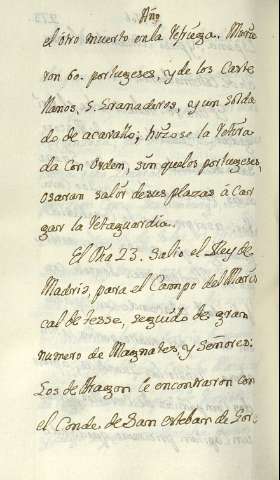 Año
el otro muerto en la refriega. Murie
ron 60. portugeses, y de los Caste
llanos, 5. Granaderos, y un Solda
do de acavallo; hizose la retira
da con Orden, sin que los portugeses,
osaran salir de sus plazas â Car
gar la retaguardia.
El Dia 23. Salio el Rey de
Madrid, para el Campo del Maris
cal de Tesse, seguido de gran
numero de Magnates, y Señores.
Los de Aragon le encontraron con
el Conde de San esteban de Gor